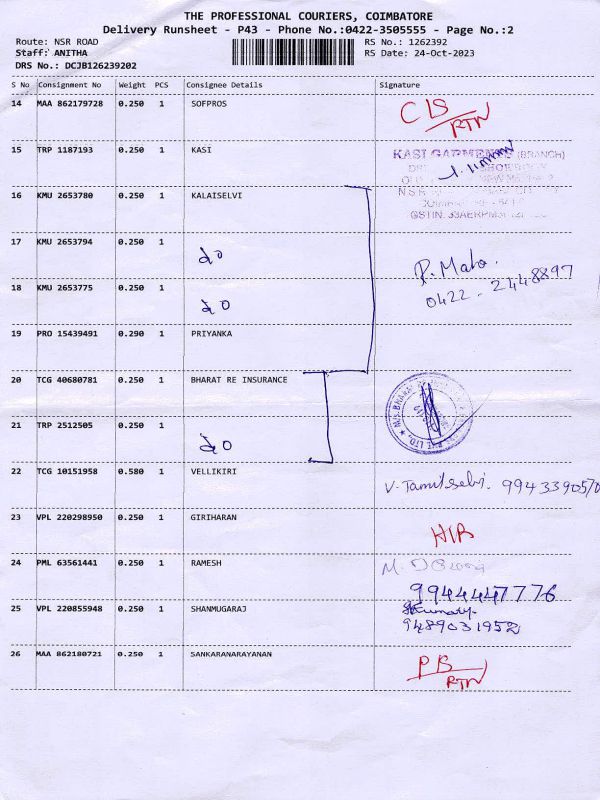 THE PROFESSIONAL COURIERS, COIMBATORE
Delivery Runsheet - P43 - Phone No.:0422-3505555 - Page No.:2
Route: NSR ROAD RS No.: 1262392
Staff: ANITHA RS Date: 24-Oct-2023
DRS No.: DCJB126239202
S No Consignment No Weight PCS Consignee Details Signature
14 MAA 862179728 0.250 1 SOFPROS
RTN
15 TRP 1187193 0.250 1 KASI
KASI GARMENTS (BRANCH)
16 KMU 2653780 0.250 1 KALAISELVI
17 KMU 2653794 0.250 1 do
P. Mala.
0422 - 2448897
18 KMU 2653775 0.250 1 do
19 PRO 15439491 0.290 1 PRIYANKA
20 TCG 40680781 0.250 1 BHARAT RE INSURANCE
21 TRP 2512505 0.250 1 do
22 TCG 10151958 0.580 1 VELLIKIRI
V. Tamilselvi. 9943390570
23 VPL 220298950 0.250 1 GIRIHARAN
24 PML 63561441 0.250 1 RAMESH
9944447776
25 VPL 220855948 0.250 1 SHANMUGARAJ
9489031952
26 MAA 862180721 0.250 1 SANKARANARAYANAN
PB
RTN